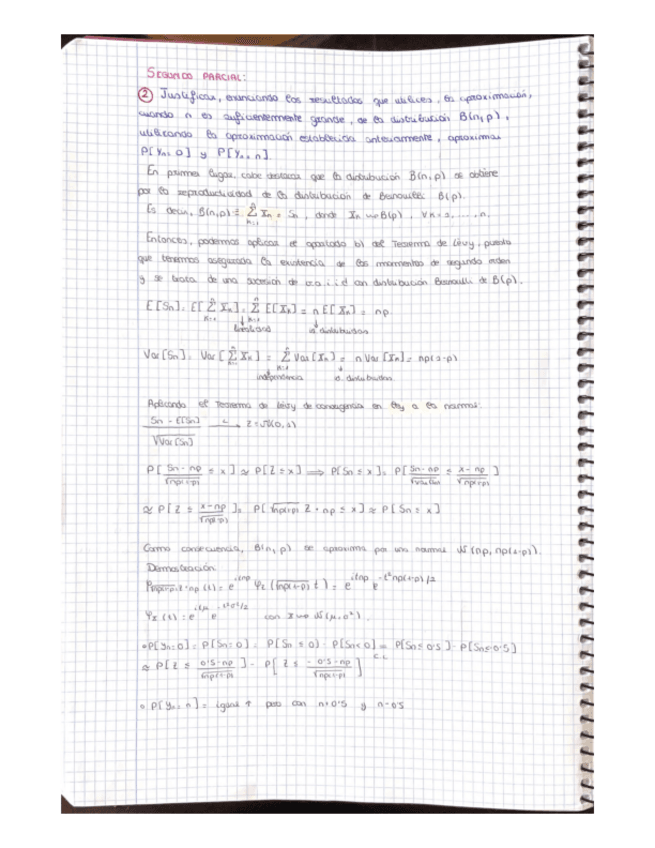 SEGUNDO PARCIAL:
② Justificar, enunciando los resultados que utilices, la aproximación,
cuando n es suficientemente grande, de la distribución B(n,p),
utilizando la aproximación establecida anteriormente, aproximar
P[Yn=0] y P[Yn=n]
En primer lugar, cabe destacar que la distribución B(n,p) se obtiene
por la reproductividad de la distribución de Bernoulli B(p).
Es decir, B(n,p) = Σ Xn = Sn, donde Xn ~ B(p), ∀n=1,...,n.
Entonces, podemos aplicar el apartado b) del Teorema de Lévy, puesto
que tenemos asegurada la existencia de los momentos de segundo orden
y se trata de una sucesión de v.a.i.i.d con distribución Bernoulli de B(p).
E[Sn] = E[Σ Xn] = Σ E[Xn] = n E[Xn] = np
linealidad   id. distribución
Var[Sn] = Var[Σ Xn] = Σ Var[Xn] = n Var[Xn] = np(1-p)
independencia   id. distribución
Aplicando el Teorema de Lévy de convergencia en ley a la normal:
(Sn - E[Sn]) / √Var[Sn] →L Z ~ N(0,1)
P[(Sn - np)/√np(1-p) ≤ x] ≈ P[Z ≤ x] ⟹ P[Sn ≤ x] = P[(Sn - np)/√Var(Sn) ≤ (x - np)/√np(1-p)]
≈ P[Z ≤ (x-np)/√np(1-p)] = P[√np(1-p) Z + np ≤ x] ≈ P[Sn ≤ x]
Como consecuencia, B(n,p) se aproxima por una normal N(np, np(1-p)).
Demostración:
φ√np(1-p) Z + np (t) = e^{itnp} φZ(√np(1-p) t) = e^{itnp} e^{-t²np(1-p)/2}
φX(t) = e^{itμ} e^{-t²σ²/2} con X ~ N(μ,σ²).
• P[Yn=0] = P[Sn=0] = P[Sn ≤ 0] - P[Sn < 0] = C.C. P[Sn ≤ 0'5] - P[Sn ≤ -0'5]
≈ P[Z ≤ (0'5-np)/√np(1-p)] - P[Z ≤ (-0'5-np)/√np(1-p)]
• P[Yn=n] = igual ↑ pero con n+0'5 y n-0'5